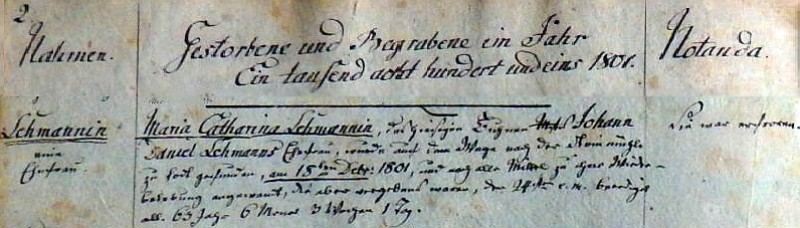 2.
Nahmen.
Gestorbene und Begrabene im Jahr
Ein tausend acht hundert und eins 1801.
Notanda.
Lehmannin
eine
Ehefrau.
Maria Catharina Lehmannin, des hiesigen Johann
Daniel Lehmanns Ehefrau, wurde auf dem Wege nach der
zu todt gefunden, am 18ten Febr. 1801, und nach alle Mittel zu ihrer Wieder-
belebung angewandt, die aber vergebens waren, den e. m. beerdiget
alt. 63 Jahr 6 Monat 3 Wochen 1 Tag.
Sie war erfroren.